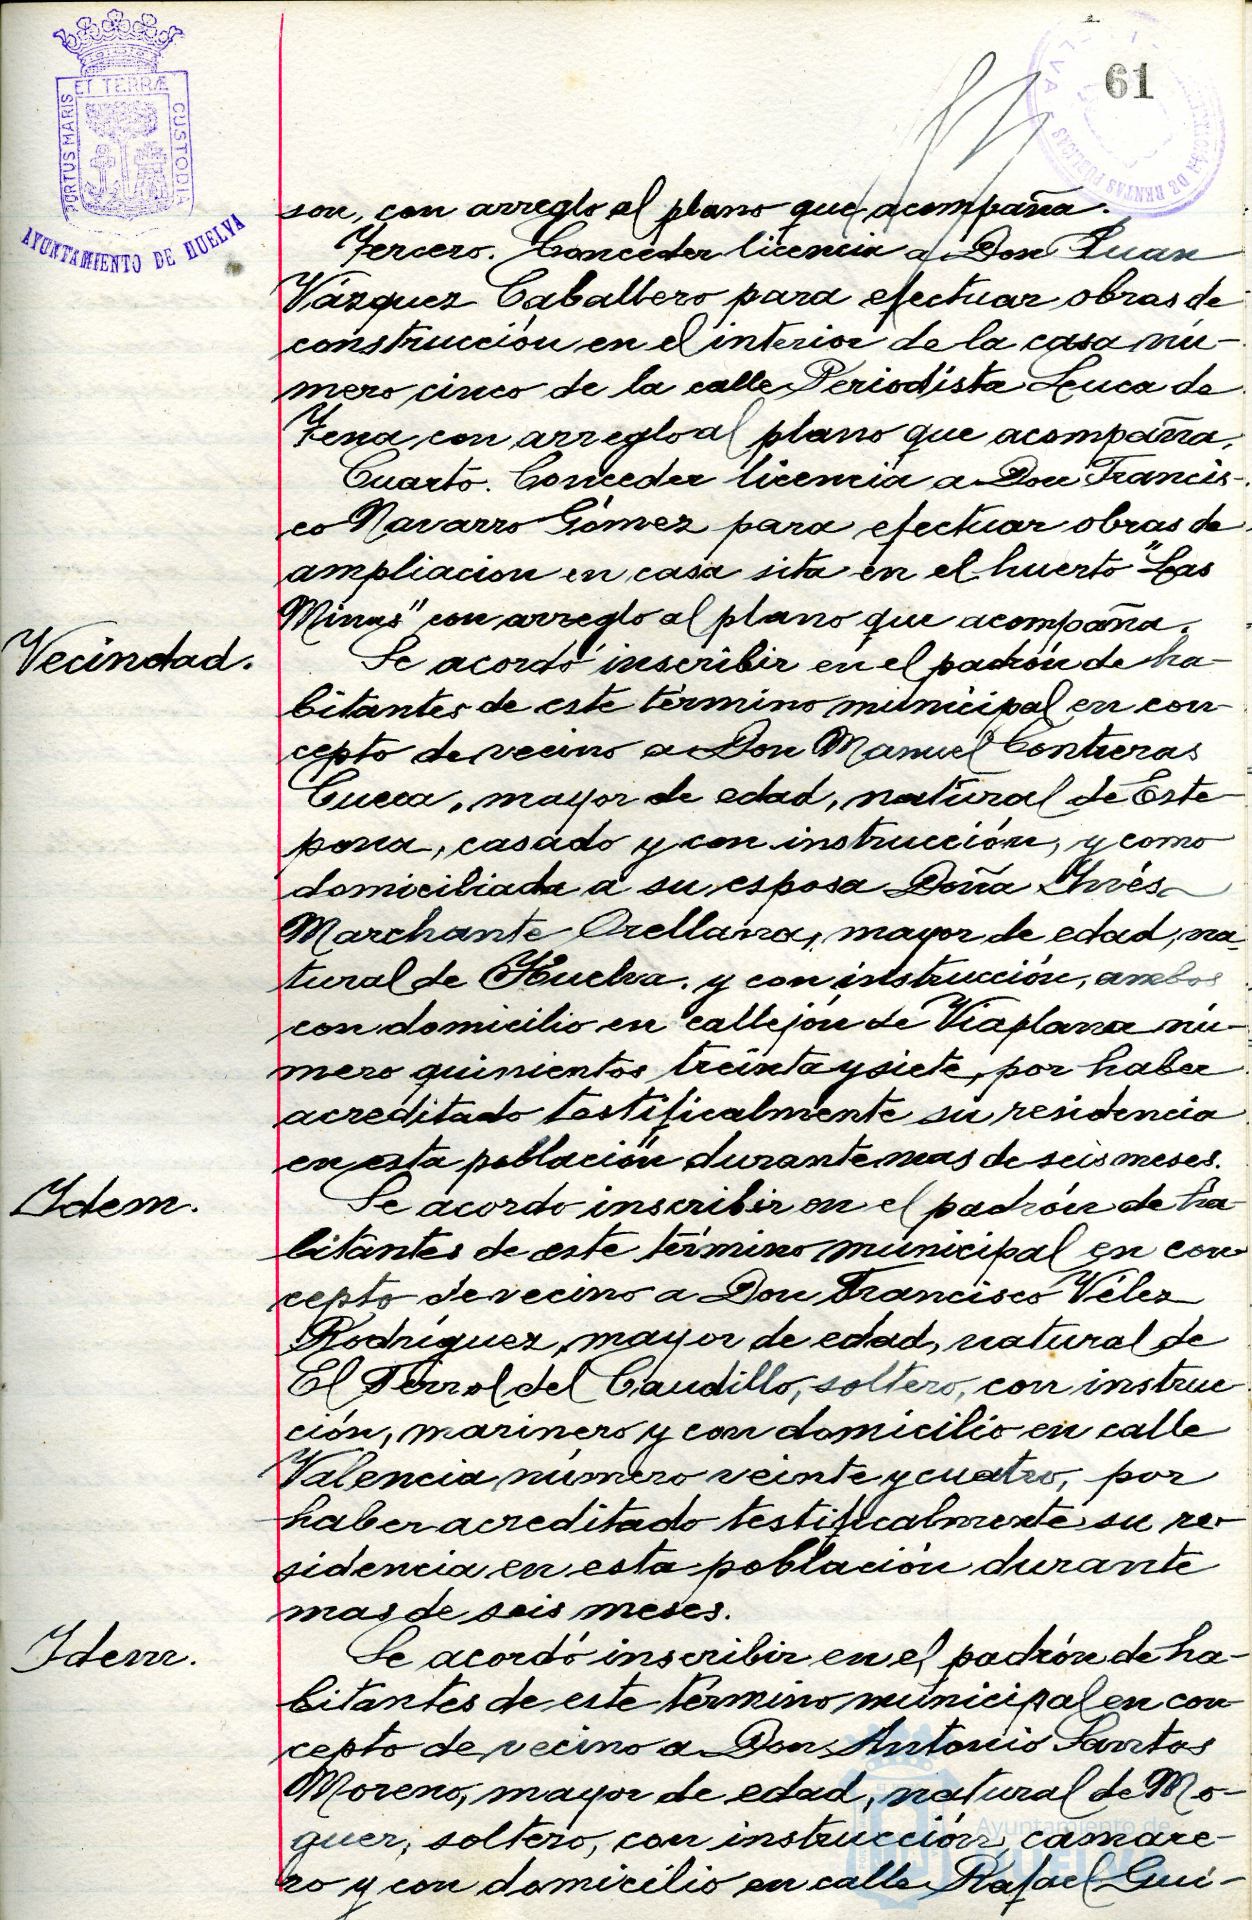 ET TERRÆ
PORTUS MARIS
CUSTODIA
AYUNTAMIENTO DE HUELVA
61
DE RENTAS PUBLICAS
son, con arreglo al plano que acompaña.
Tercero. Conceder licencia a Don Juan
Vázquez Caballero para efectuar obras de
construcción en el interior de la casa nú-
mero cinco de la calle Periodista Luca de
Tena, con arreglo al plano que acompaña.
Cuarto. Conceder licencia a Don Francis-
co Navarro Gómez para efectuar obras de
ampliacion en casa sita en el huerto "Las
Minas" con arreglo al plano que acompaña.
Vecindad.
Se acordó inscribir en el padrón de ha-
bitantes de este término municipal en con-
cepto de vecino a Don Manuel Contreras
mayor de edad, natural de Este-
pona, casado y con instrucción, y como
domiciliada a su esposa Doña Inés
Marchante Orellana, mayor de edad, na-
tural de Huelva y con instrucción, ambos
con domicilio en callejón de Viaplana nú-
mero quinientos treinta y siete, por haber
acreditado testificalmente su residencia
en esta población durante mas de seis meses.
Idem.
Se acordó inscribir en el padrón de ha
bitantes de este término municipal en con-
cepto de vecino a Don Francisco Vélez
Rodríguez, mayor de edad, natural de
El Ferrol del Caudillo, soltero, con instruc-
ción, marinero y con domicilio en calle
Valencia número veinte y cuatro, por
haber acreditado testificalmente su re-
sidencia en esta población durante
mas de seis meses.
Idem.
Se acordó inscribir en el padrón de ha-
bitantes de este término municipal en con-
cepto de vecino a Don Antonio Santos
Moreno, mayor de edad, natural de Mo-
guer, soltero, con instrucción, camare-
ro y con domicilio en calle Rafael Gui-
Ayuntamiento de
HUELVA